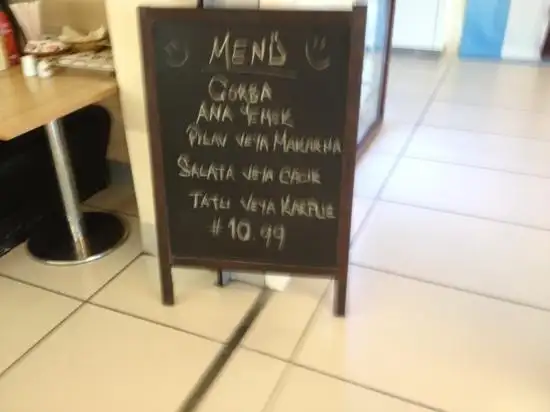 MENÜ
ÇORBA
ANA YEMEK
PİLAV VEYA MAKARNA
SALATA VEYA CACIK
TATLI VEYA KARPUZ
#10.99